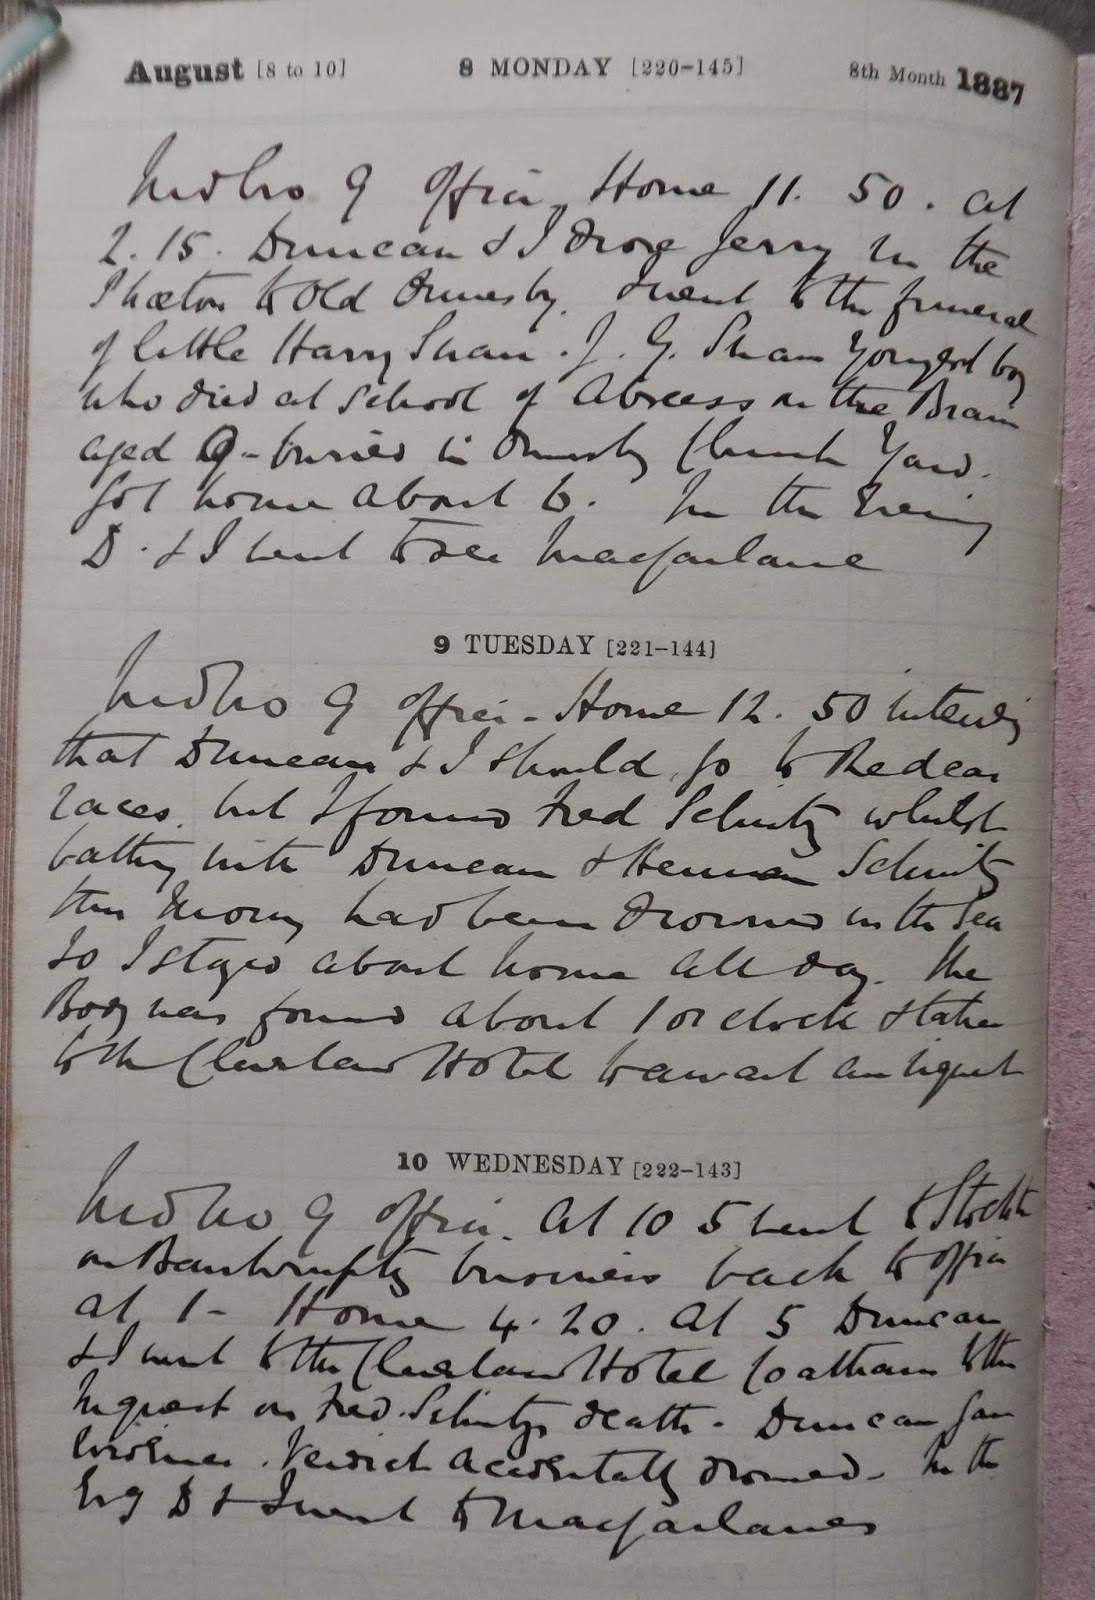 August [8 to 10] 8 MONDAY [220-145] 8th Month 1887
Mdbro 9 Office Home 11.50. at
2.15. Duncan & I drove Jerry in the
Phaeton to Old Ormesby. I went to the funeral
of little Harry Swan. J. G. Swan Youngest boy
who died at School of Abscess on the Brain
aged 9 - buried in Ormesby Church Yard.
Got home about 6. In the Evening
D. & I went to see Macfarlane
9 TUESDAY [221-144]
Mdbro 9 Office - Home 12.50 intending
that Duncan & I should go to Redcar
races. but I found Fred Schmitz whilst
bathing with Duncan & Herman Schmitz
this Morng had been drowned in the Sea
so I stayed about home all day. The
Body was found about 1 o'clock & taken
to the Cleveland Hotel to await an inquest
10 WEDNESDAY [222-143]
Mdbro 9 Office. At 10 5 went to Stockton
on Bankruptcy business back to office
at 1 - Home 4.20. At 5 Duncan
& I went to the Cleveland Hotel Coatham to the
Inquest on Fred. Schmitz's death - Duncan gave
Evidence. Verdict Accidentally drowned - In the
Evg D & I went to Macfarlanes